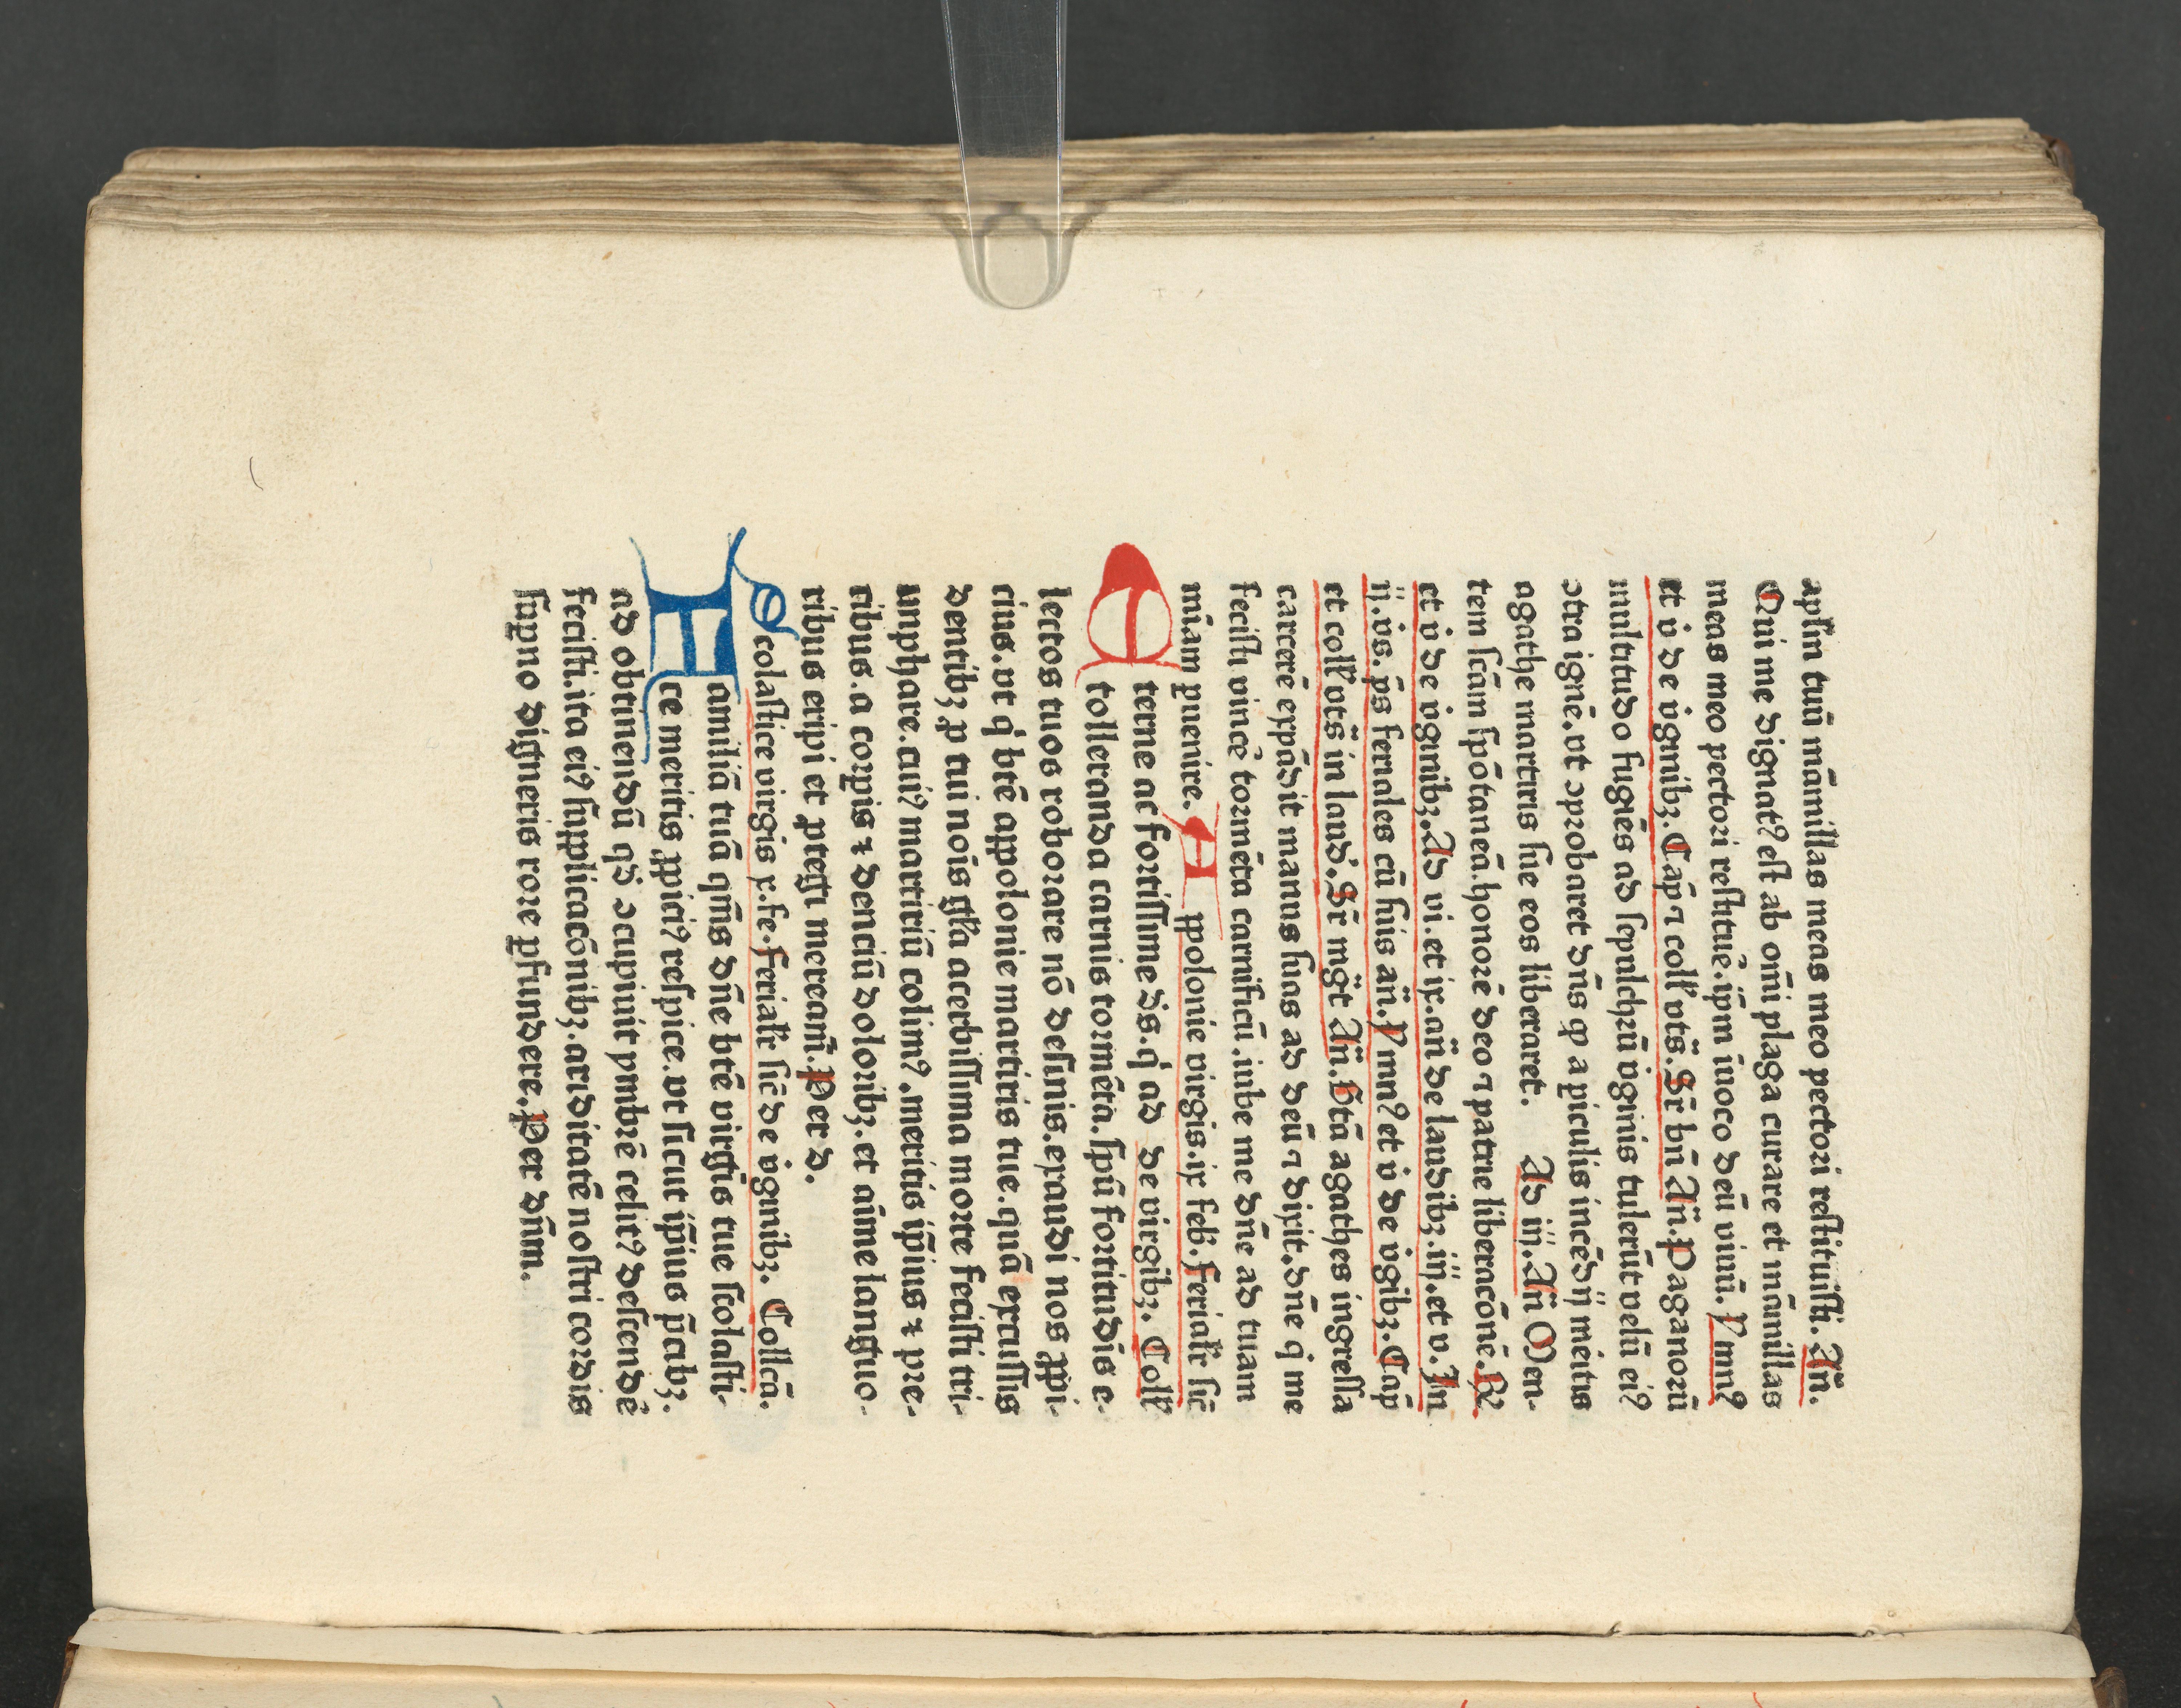 aplm̄ tuū māmillas meas meo pectori reſtituiſti. Añ.
Qui me dignatꝰ eſt ab om̄i plaga curare et māmillas
meas meo pectori reſtituē.ip̄m īuoco deū viuū. Ymnꝰ
et v̇ de v̇gīnibꝫ. Cāp ⁊ coll' vts̄. Sr̄ bn̄ Añ. Paganorū
multitudo fugiēs ad ſepulchrū v̇ginis tulerūt velū eiꝰ
ↄtra ignē. vt ↄprobaret dn̄s ꝙ a piculis incēdij mēitis
agathe martiris ſue eos liberaret. Ad iij. Añ Men-
tem ſcām ſpōtaneā.honorē deo ⁊ patrie liberacōnē. ꝶ
et v̇ de v̇gīnibꝫ. Ad vi. et ix. an̄ de laudibꝫ. iij. et v. In
ij. vs̄. p̄s feriales cū ſuis an̄. Ymnꝰ et v̇ de v̇gībꝫ. Cāp
et coll' vts̄ in laud. Sr̄ mḡt Añ. Btā agathes ingreſſa
carcerē expādit manus ſuas ad deū ⁊ dixit. dn̄e q̇ me
feciſti vincē tormēta carnificū .iube me dn̄e ad tuam
mīam ꝑuenire. Appolonie virgis. ix feb. Ferial'r ſic̄
terne ac fortiſſime ds̄. q̇ ad de virgībꝫ. Coll'
E tolleranda carnis tormēta. ſpū fortitudīs e-
lectos tuos roborare nō deſinis. exaudi nos ꝓpi-
cius. vt q̇ btē appolonie martiris tue. quā excuſſis
dentibꝫ ꝓ tui noīs gl'a acerbiſſima morte feciſti tri-
umphare. cuiꝰ martiriū colimꝰ .meritis ip̄ius ⁊ pre-
cibus. a corpis ⁊ denciū doloribꝫ. et aīme languo-
ribus eripi et ꝓtegi meream̄. Per d.
Scolaſtice virgis x. fe. Ferial'r ſic̄ de v̇gīnibꝫ. Collc̄a.
Familiā tuā qm̄s dn̄e btē virgīs tue ſcolaſti-
ce meritis ꝓpiciꝰ reſpice. vt ſicut ip̄ius p̄cibꝫ.
ad obtinendū qđ ↄcupiuit ꝑ imbrē celitꝰ deſcendē
feciſti. ita eiꝰ ſupplicacōnibꝫ. ariditatē noſtri cordis
ſuꝑno digneris rore ꝑfundere. Per dn̄m.